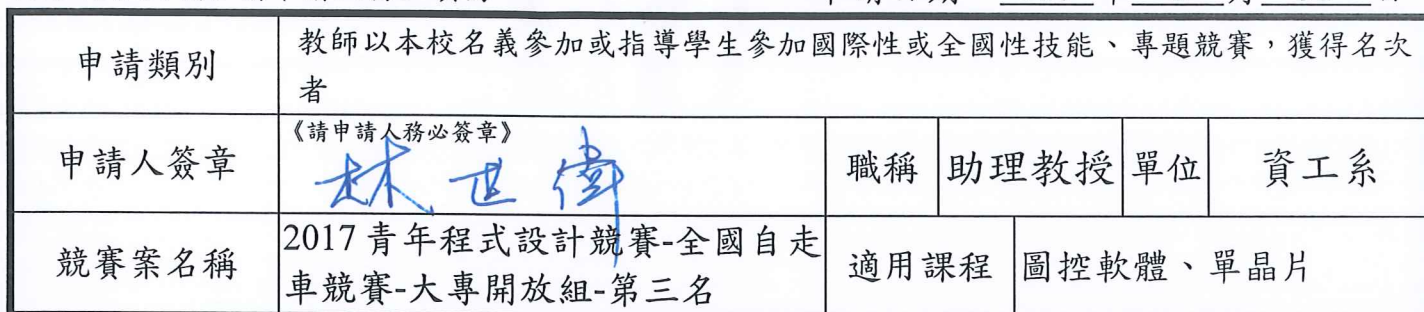 申請類別
教師以本校名義參加或指導學生參加國際性或全國性技能、專題競賽，獲得名次
者
申請人簽章
《請申請人務必簽章》
林世偉
職稱
助理教授
單位
資工系
競賽案名稱
2017 青年程式設計競賽-全國自走
車競賽-大專開放組-第三名
適用課程
圖控軟體、單晶片